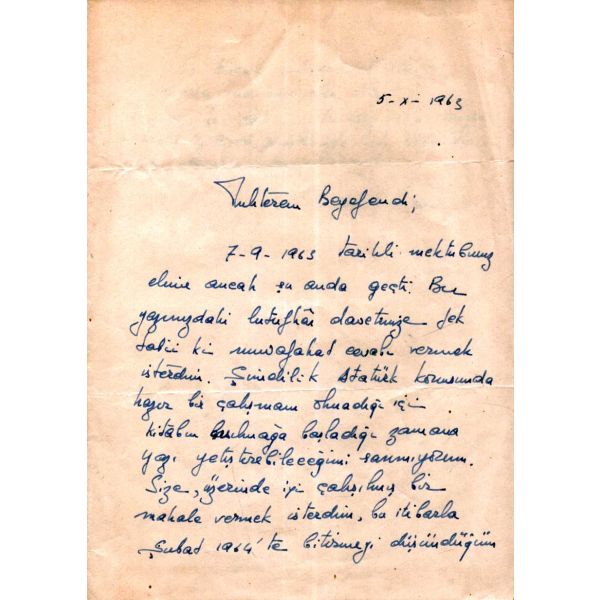 5-XI-1963
Muhterem Beyefendi,
7-9-1963 tarihli mektubunuz
elime ancak şu anda geçti. Bu
yazınızdaki lütufkâr davetinize pek
tabii ki muvafakat cevabı vermek
isterdim. Şimdilik Atatürk konusunda
hazır bir çalışmam olmadığı için
kitabın basılmağa başladığı zamana
yazı yetiştirebileceğimi sanmıyorum.
Size, üzerinde iyi çalışılmış bir
makale vermek isterdim, bu itibarla
Şubat 1964'te bitirmeyi düşündüğüm